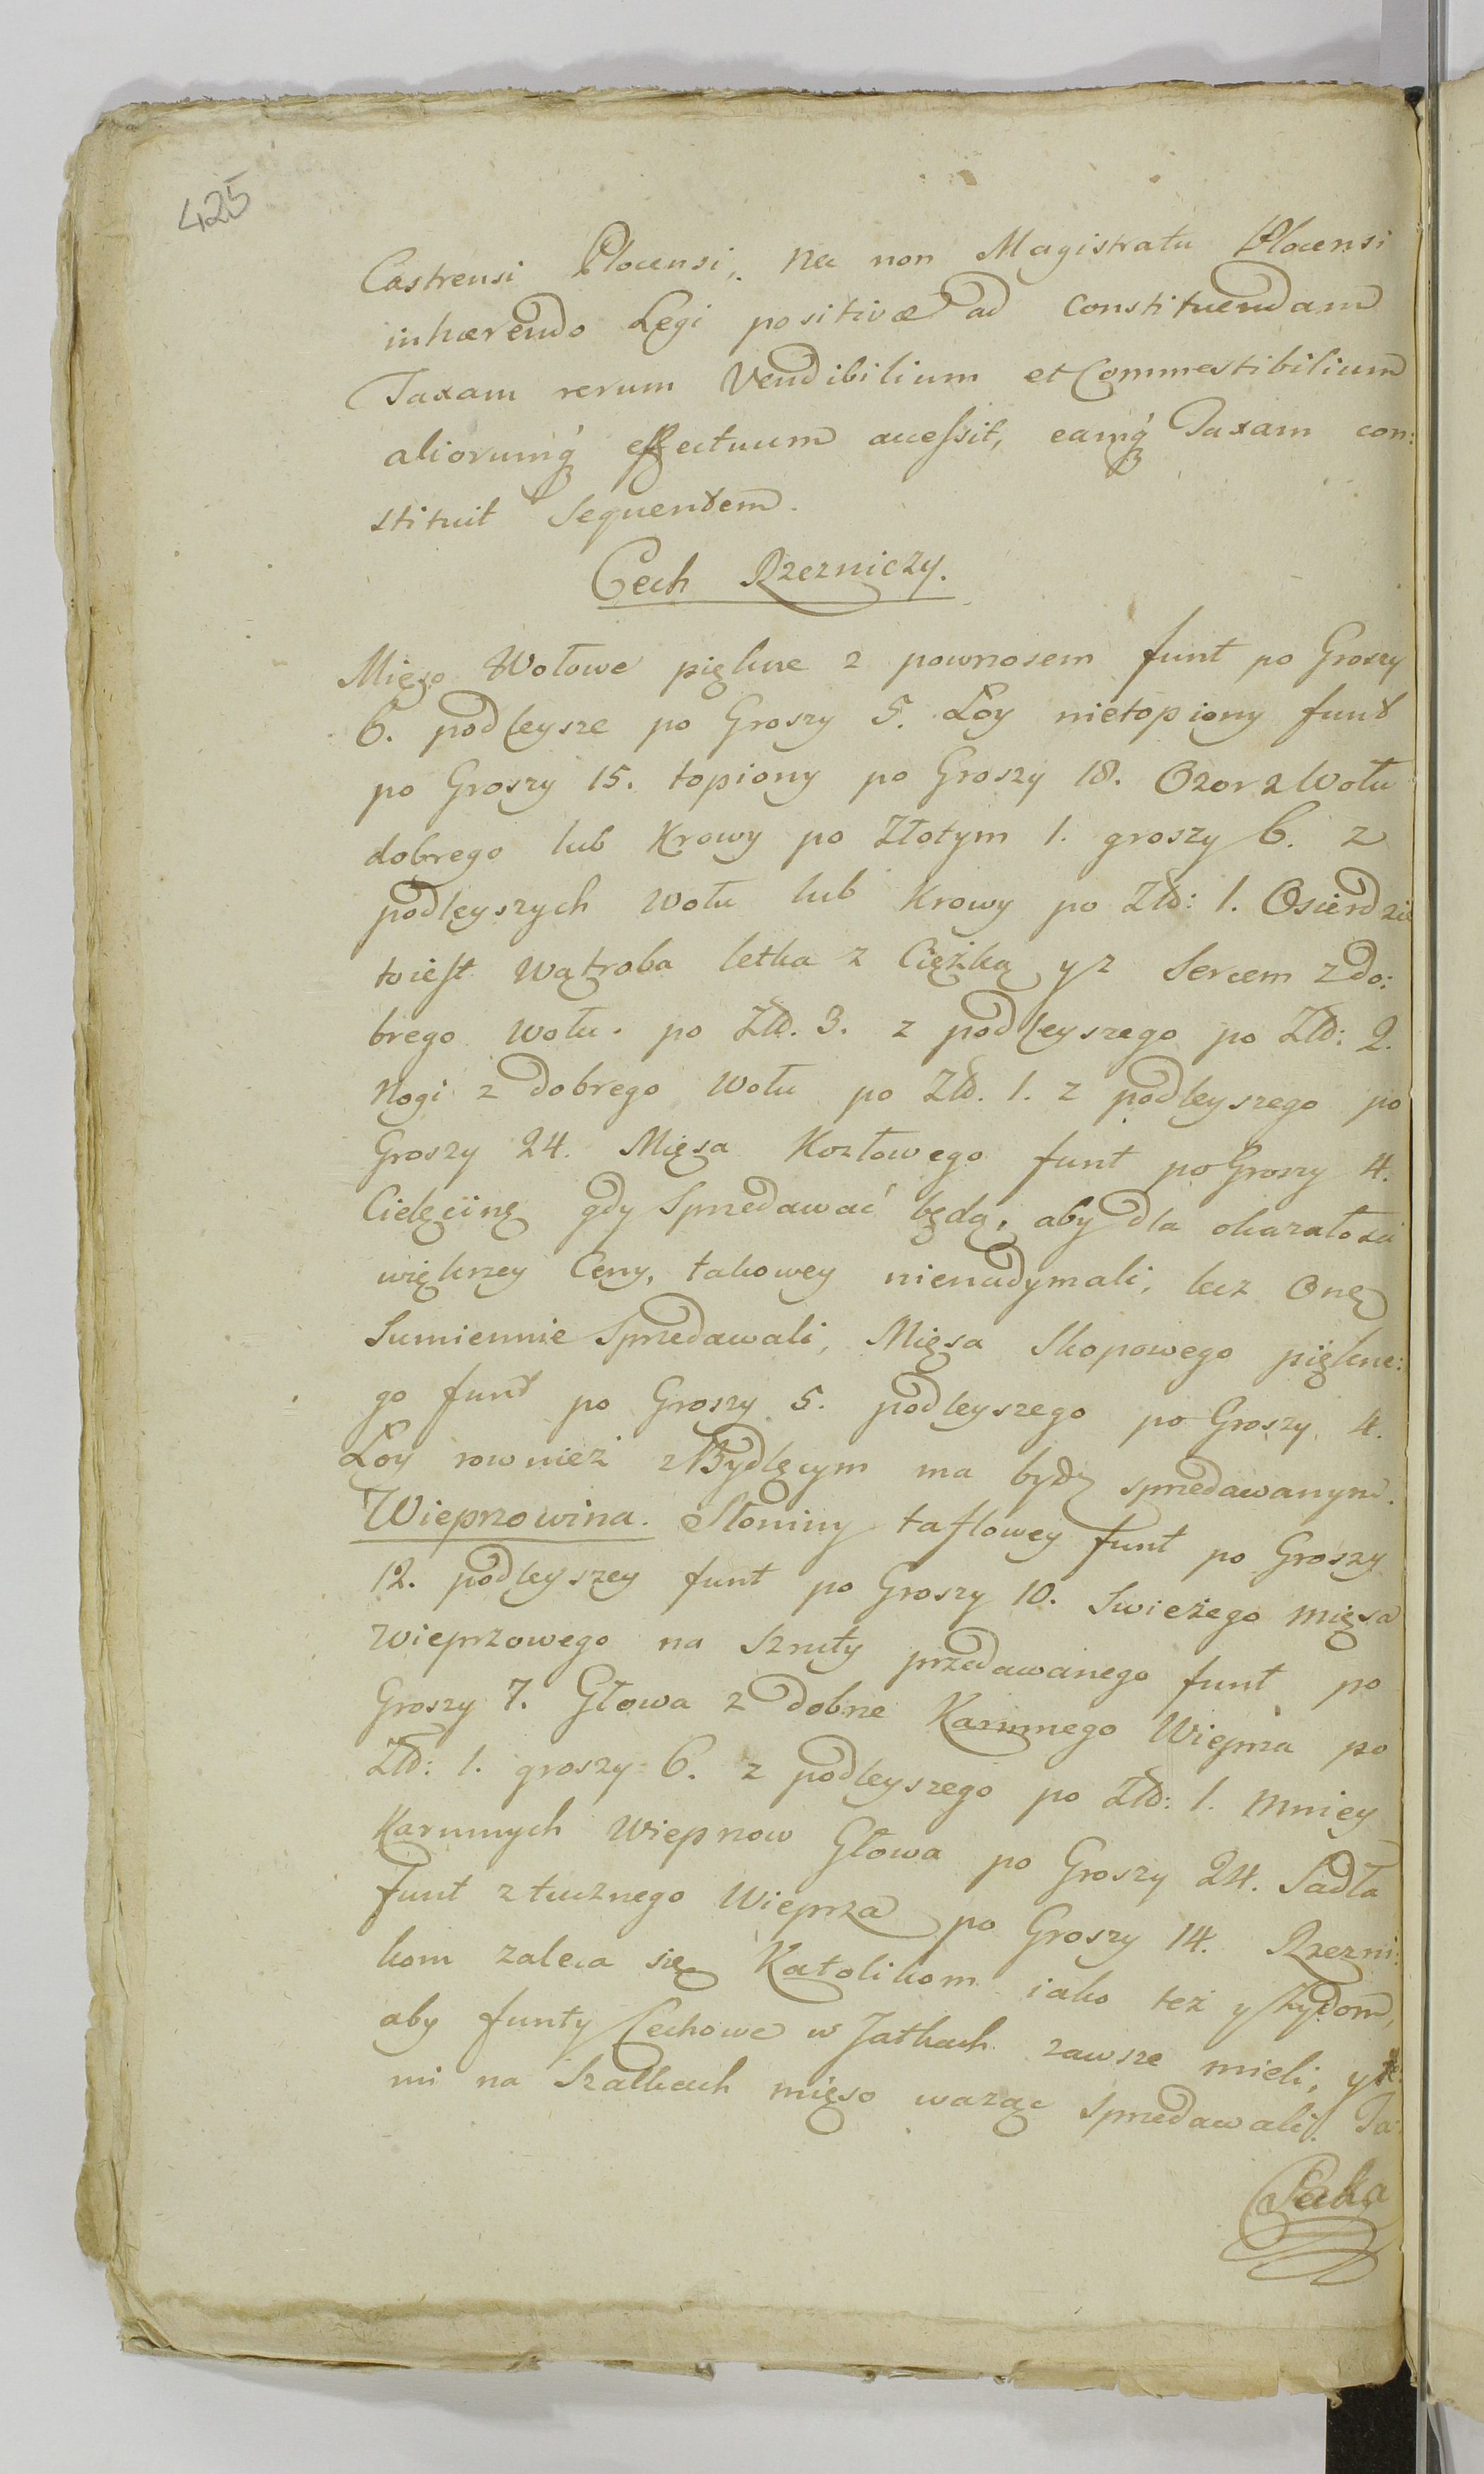 425
Castrensi Plocensi, nec non Magistratu Plocensi
inhærendo Legi positivæ ad Constituendam
Taxam rerum Vendibilium et Commestibilium
aliorumq́ effectuum accessit, eamq́ Taxam con:
stituit Sequentem.
Cech Rzezniczy.
Mięso Wołowe piękne z pownosem funt po Groszy
6. podleysze po Groszy 5. Łoy nietopiony funt
po Groszy 15. topiony po Groszy 18. Ozor z Wołu
dobrego lub Krowy po Złotym 1. groszy 6. z
podleyszych wołu lub Krowy po Złł: 1. Osierdzie
toiest wątroba letka z Ciężką y z Sercem z do:
brego wołu. po Złł. 3. z podleyszego po Złł: 2.
Nogi z dobrego Wołu po Złł. 1. z podleyszego po
Groszy 24. Mięsa Kozłowego funt po Groszy 4.
Cielęcinę gdy Sprzedawać będą, aby dla okazałości
większey Ceny, takowey nienadymali, lecz Onę
Sumiennie Sprzedawali, Mięsa Skopowego piękne:
go funt po Groszy 5. podleyszego po Groszy 4.
Łoy rownież z Bydlęcym ma bydz sprzedawanym.
Wieprzowina. Słoniny taflowey funt po Groszy
12. podleyszey funt po Groszy 10. Swieżego mięsa
wieprzowego na Sznity przedawanego funt po
Groszy 7. Głowa z dobrze Karmnego Wieprza po
Złł: 1. groszy 6. z podleyszego po Złł: 1. mniey
Karmnych Wieprzow Głowa po Groszy 24. Sadła
funt z tucznego Wieprza po Groszy 14. Rzezni:
kom zaleca się Katolikom iako też y Żydom,
aby funty Cechowe w Jatkach zawsze mieli, y te:
mi na Szalkach mięso ważąc sprzedawali. Ta: